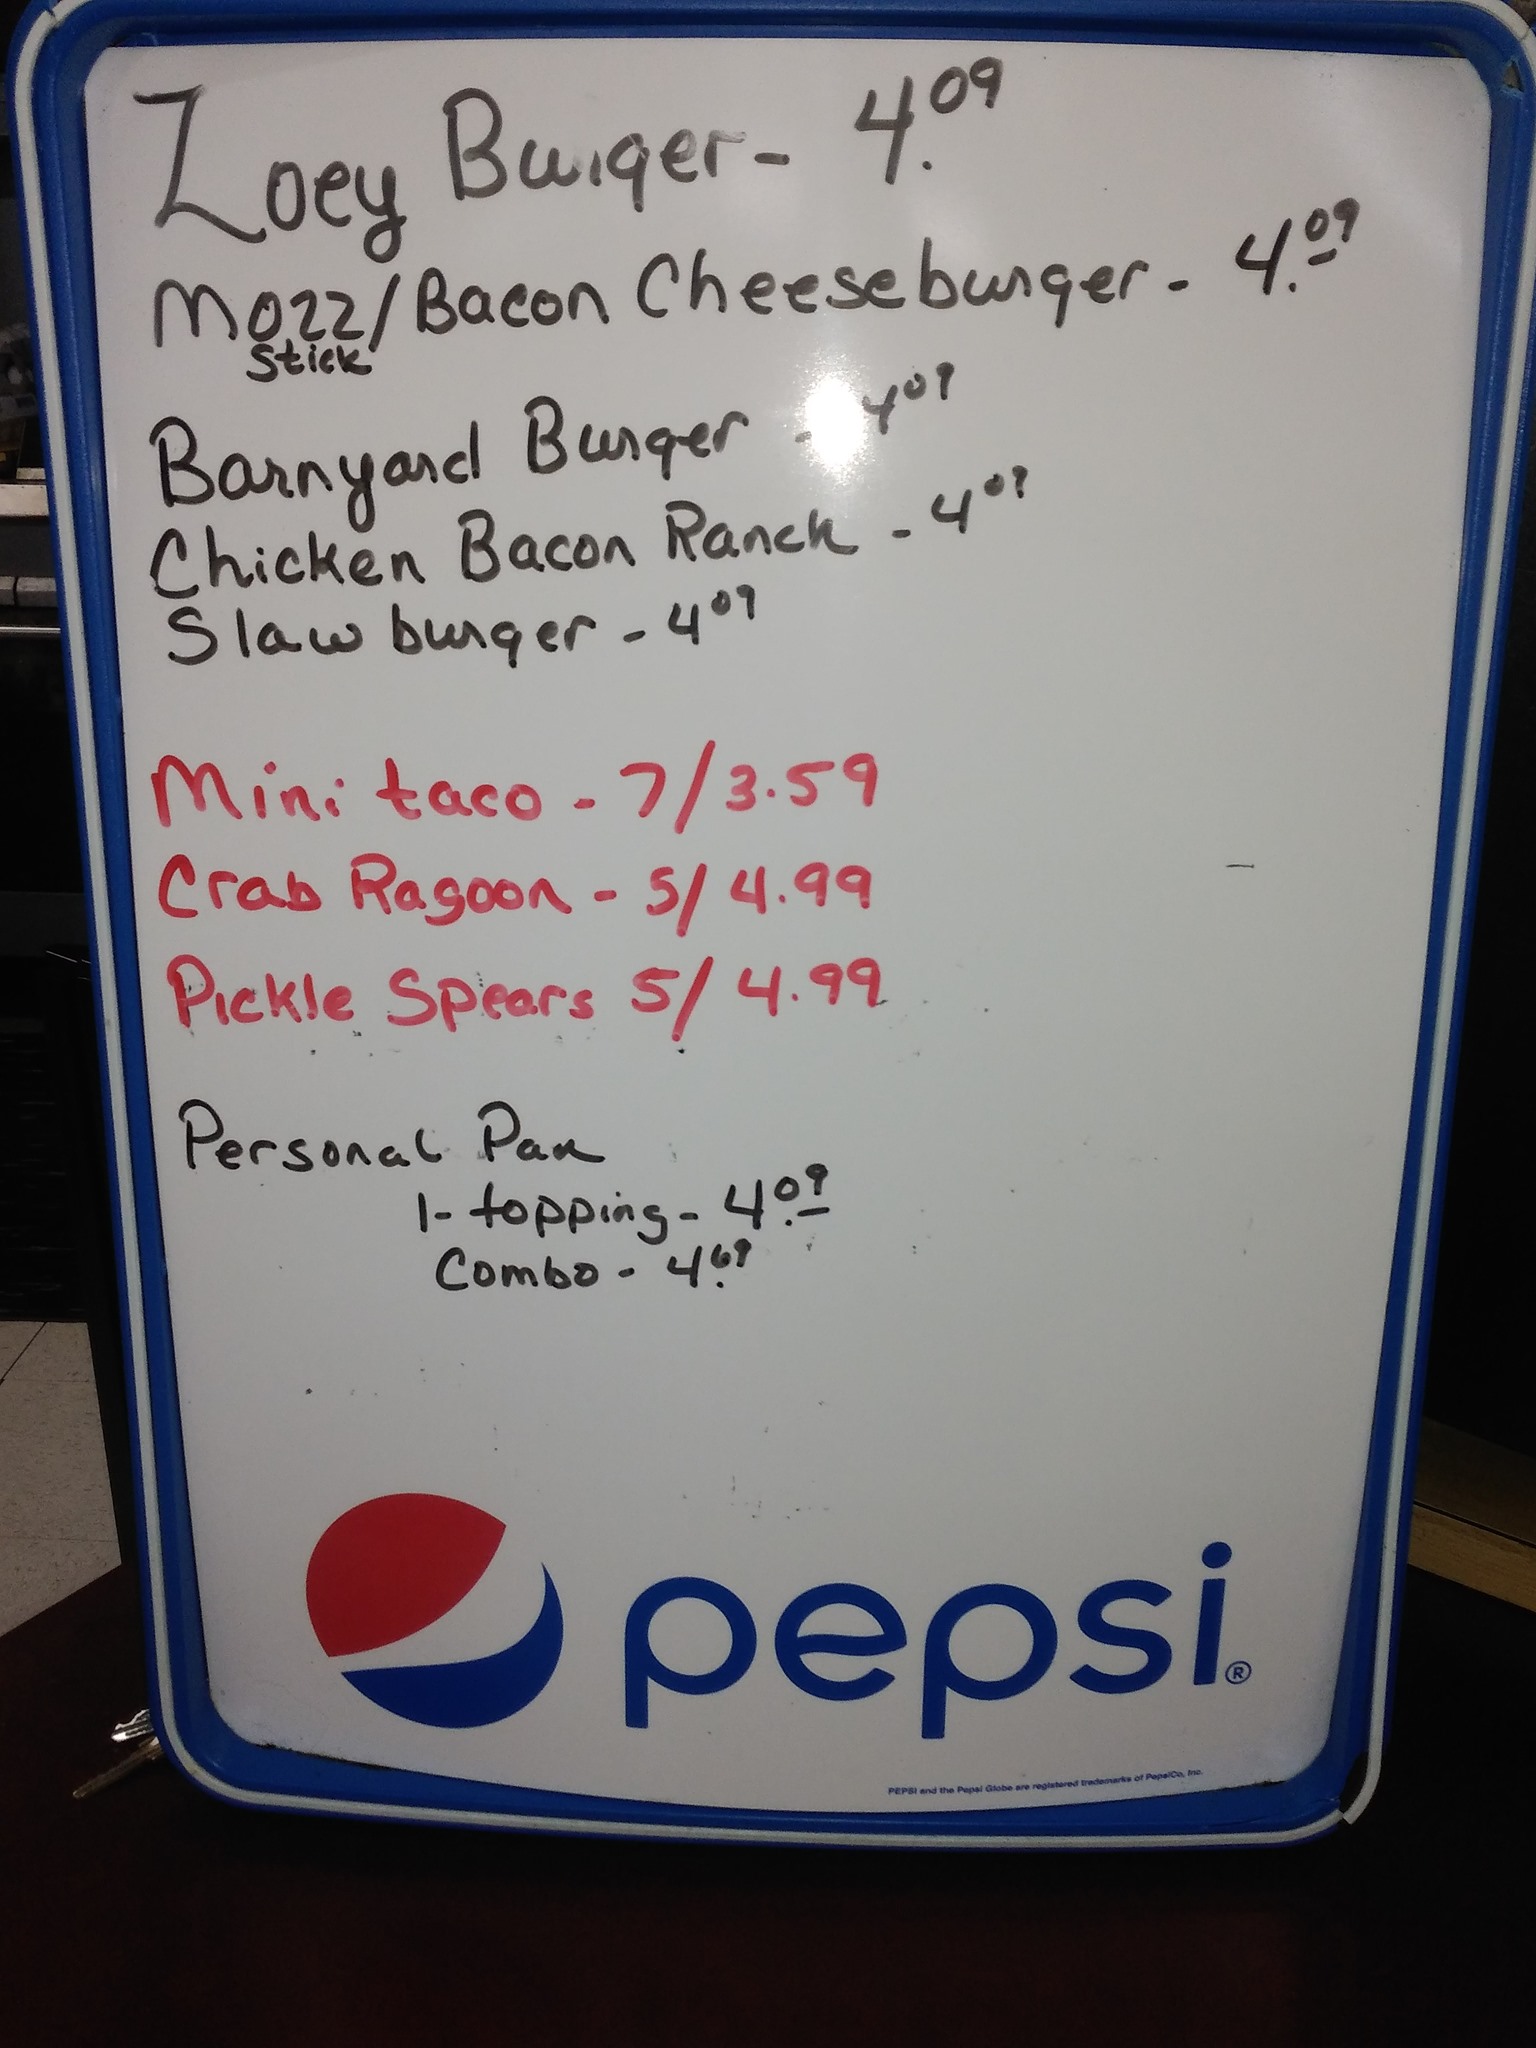 Zoey Burger - 4.09
Mozz/Bacon Cheeseburger - 4.09
Stick
Barnyard Burger - 4 09
Chicken Bacon Ranch - 4 09
Slaw burger - 4 09
Mini taco - 7/3.59
Crab Ragoon - 5/4.99
Pickle Spears 5/4.99
Personal Pan
1-topping - 4.09
Combo - 4.69
pepsi®
PEPSI and the Pepsi Globe are registered trademarks of PepsiCo, Inc.